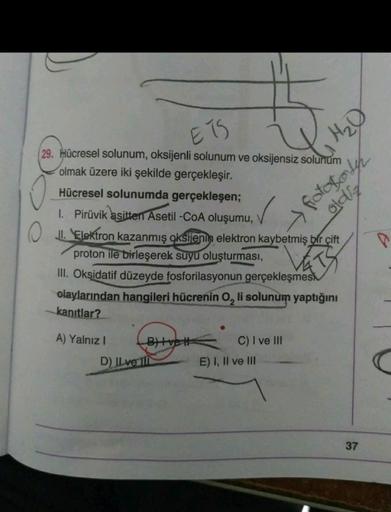 ETS
H2O
29. Hücresel solunum, oksijenli solunum ve oksijensiz solunum
olmak üzere iki şekilde gerçekleşir.
Hücresel solunumda gerçekleşen;
I. Pirüvik asitten Asetil -CoA oluşumu,
II. Elektron kazanmış oksijenin elektron kaybetmiş bir çift
proton ile birleşerek suyu oluşturması,
ETS
III. Oksidatif düzeyde fosforilasyonun gerçekleşmesi
olaylarından hangileri hücrenin O2 li solunum yaptığını
kanıtlar?
A) Yalnız I B) I ve II C) I ve III
D) II ve III E) I, II ve III
37